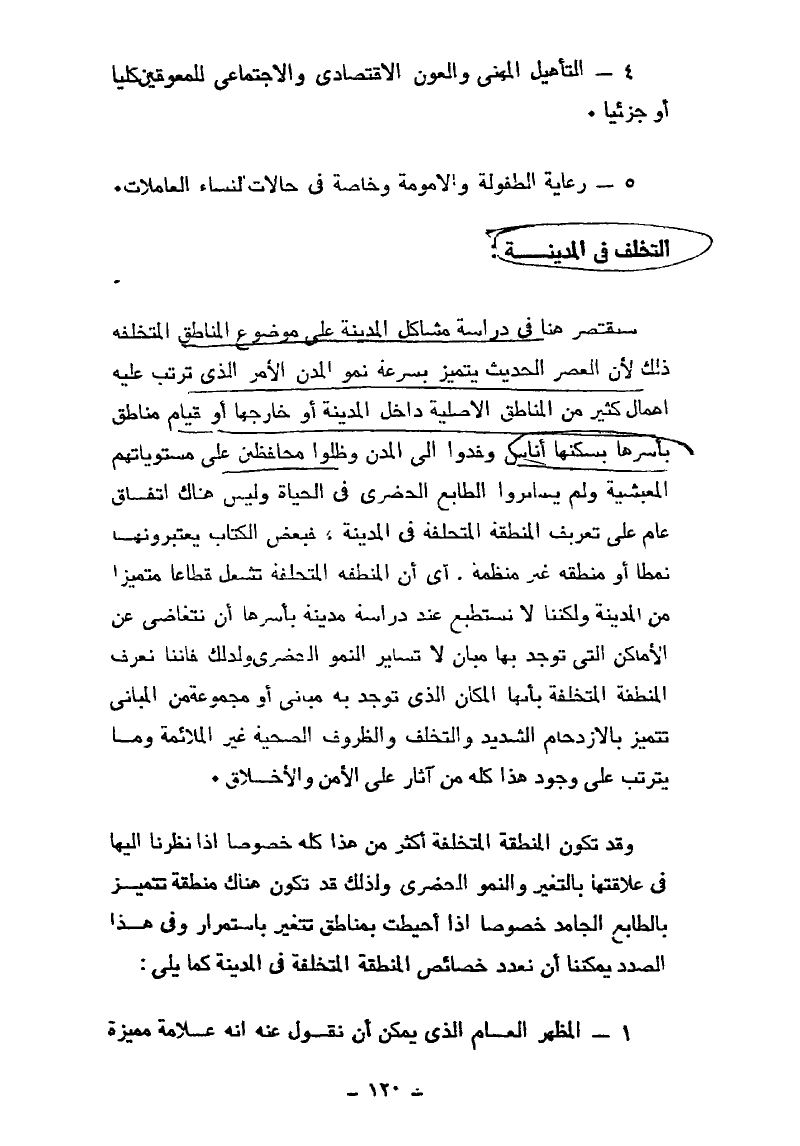 ٤ – التأهيل المهنى والعون الاقتصادى والاجتماعى للمعوقين كليا
أو جزئيا .
٥ – رعاية الطفولة والامومة وخاصة فى حالات لنساء العاملات .
التخلف فى المدينـــة :
سنقتصر هنا فى دراسة مشاكل المدينة على موضوع المناطق المتخلفه
ذلك لأن العصر الحديث يتميز بسرعة نمو المدن الأمر الذى ترتب عليه
اهمال كثير من المناطق الاصلية داخل المدينة أو خارجها أو قيام مناطق
بأسرها يسكنها أناس وفدوا الى المدن وظلوا محافظين على مستوياتهم
المعيشية ولم يسايروا الطابع الحضرى فى الحياة وليس هناك اتفـاق
عام على تعريف المنطقة المتخلفة فى المدينة ، فبعض الكتاب يعتبرونهـا
نمطا أو منطقه غير منظمة . أى أن المنطقه المتخلفة تشغل قطاعا متميزا
من المدينة ولكننا لا نستطيع عند دراسة مدينة بأسرها أن نتغاضى عن
الأماكن التى توجد بها مبان لا تساير النمو الحضرى ولذلك فاننا نعرف
المنطقة المتخلفة بأنها المكان الذى توجد به مبانى أو مجموعة من المبانى
تتميز بالازدحام الشديد والتخلف والظروف الصحية غير الملائمة ومـا
يترتب على وجود هذا كله من آثار على الأمن والأخـلاق .
وقد تكون المنطقة المتخلفة أكثر من هذا كله خصوصا اذا نظرنا اليها
فى علاقتها بالتغير والنمو الحضرى ولذلك قد تكون هناك منطقة تتميـز
بالطابع الجامد خصوصا اذا أحيطت بمناطق تتغير باستمرار وفى هـذا
الصدد يمكننا أن نعدد خصائص المنطقة المتخلفة فى المدينة كما يلى :
١ – المظهر العـام الذى يمكن أن نقـول عنه انه عـلامة مميزة
– ١٢٠ –